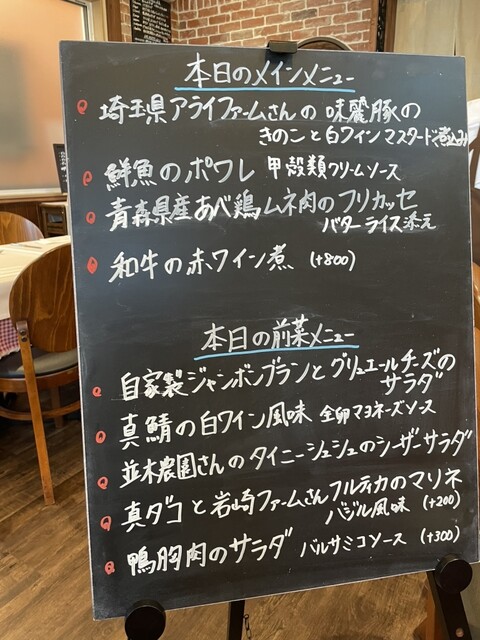 本日のメインメニュー
埼玉県アライファームさんの 味麗豚の
きのこと白ワインマスタード煮込み
鮮魚のポワレ 甲殻類クリームソース
青森県産あべ鶏ムネ肉のフリカッセ
バターライス添え
和牛の赤ワイン煮 (+800)
本日の前菜メニュー
自家製ジャンボンブランとグリュエールチーズの
サラダ
真鯖の白ワイン風味 全卵マヨネーズソース
並木農園さんのタイニーシュシュのシーザーサラダ
真ダコと岩崎ファームさんフルティカのマリネ
バジル風味 (+200)
鴨胸肉のサラダ バルサミコソース (+300)